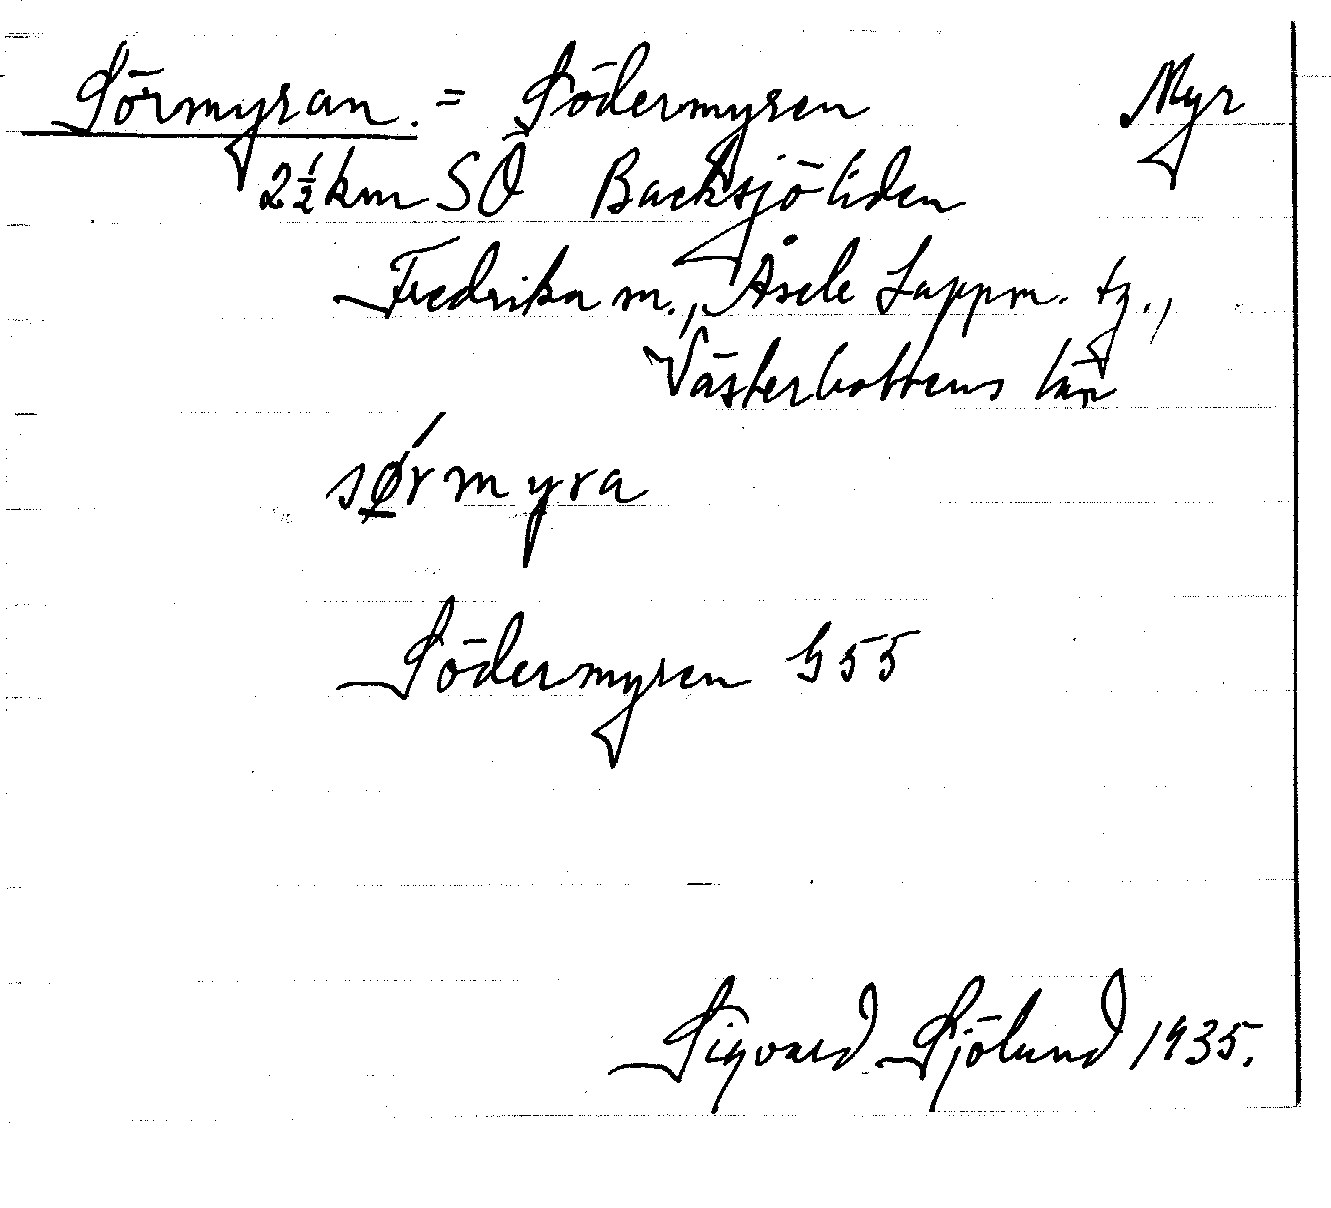 Sörmyran. = Södermyren Myr
2½ km SÖ Backsjöliden
Fredrika m., Åsele Lappm. tg.,
Västerbottens län
sǿ̲rmyra
Södermyren G55
Sigvard Sjölund 1935.